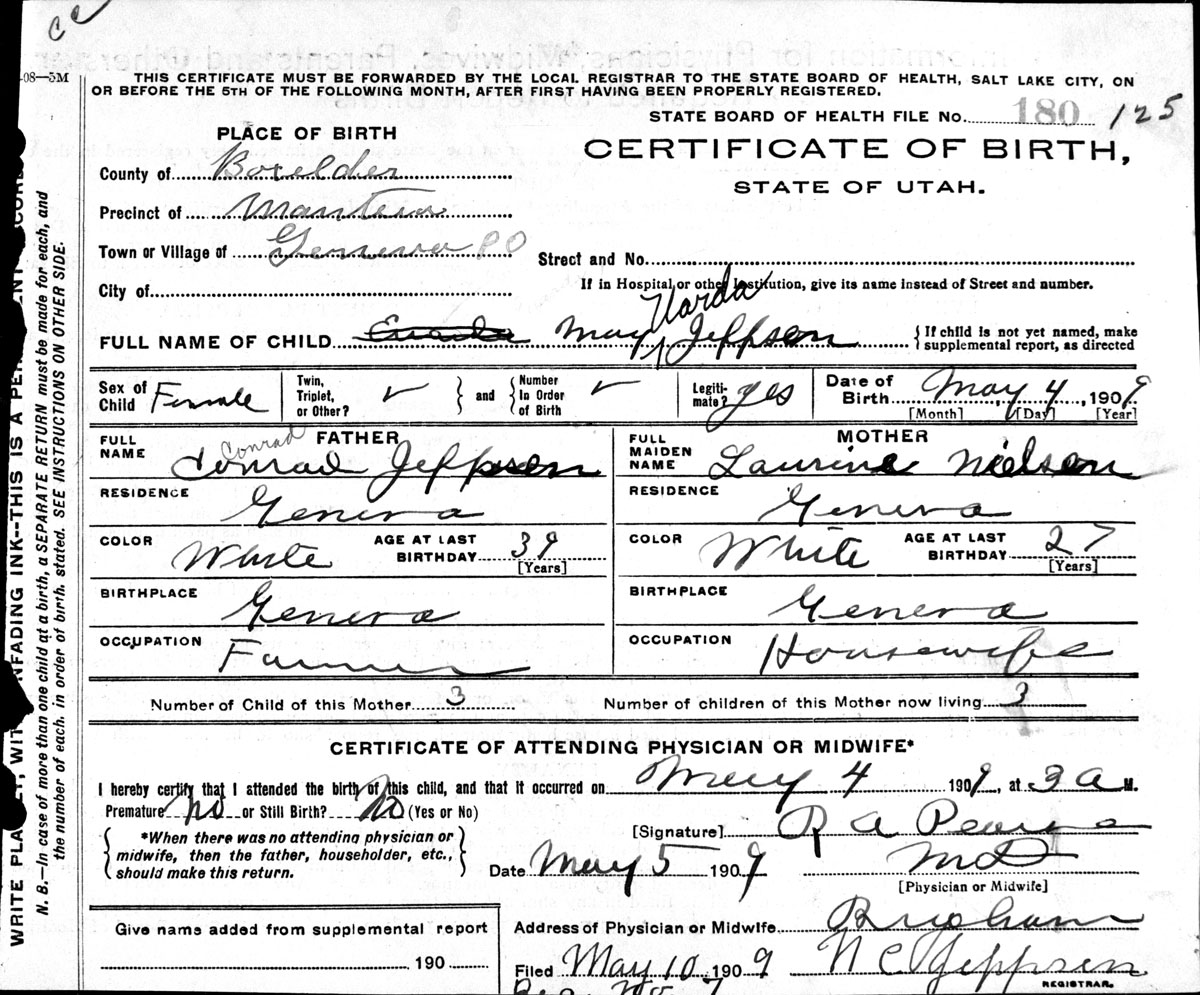 CC
08—5M
THIS CERTIFICATE MUST BE FORWARDED BY THE LOCAL REGISTRAR TO THE STATE BOARD OF HEALTH, SALT LAKE CITY, ON
OR BEFORE THE 5TH OF THE FOLLOWING MONTH, AFTER FIRST HAVING BEEN PROPERLY REGISTERED.
STATE BOARD OF HEALTH FILE No. 180 125
PLACE OF BIRTH
CERTIFICATE OF BIRTH,
STATE OF UTAH.
County of Boxelder
Precinct of Mantua
Town or Village of Geneva P O
Street and No.
City of
If in Hospital or other Institution, give its name instead of Street and number.
Varda
FULL NAME OF CHILD May Jeppson {If child is not yet named, make
supplemental report, as directed
Sex of Child Female
Twin, Triplet, or Other? ✓ and Number In Order of Birth ✓
Legitimate? yes
Date of Birth May 4, 1909
[Month] [Day] [Year]
FATHER
FULL NAME Conrad Jeppsen
Conrad
MOTHER
FULL MAIDEN NAME Laurine Nielsen
RESIDENCE Geneva
RESIDENCE Geneva
COLOR White AGE AT LAST BIRTHDAY 39 [Years]
COLOR White AGE AT LAST BIRTHDAY 27 [Years]
BIRTHPLACE Geneva
BIRTHPLACE Geneva
OCCUPATION Farmer
OCCUPATION Housewife
Number of Child of this Mother 3 Number of children of this Mother now living 3
CERTIFICATE OF ATTENDING PHYSICIAN OR MIDWIFE*
I hereby certify that I attended the birth of this child, and that it occurred on May 4 1909, at 3 A M.
Premature No or Still Birth? No (Yes or No)
*When there was no attending physician or
midwife, then the father, householder, etc.,
should make this return.
[Signature] R A Pearse
Date May 5 1909 MD
[Physician or Midwife]
Give name added from supplemental report
190
Address of Physician or Midwife Brigham
Filed May 10 1909 N C Jeppsen
REGISTRAR.
WRITE PLAINLY, WITH UNFADING INK--THIS IS A PERMANENT RECORD
N. B.—In case of more than one child at a birth, a SEPARATE RETURN must be made for each, and
the number of each, in order of birth, stated. SEE INSTRUCTIONS ON OTHER SIDE.